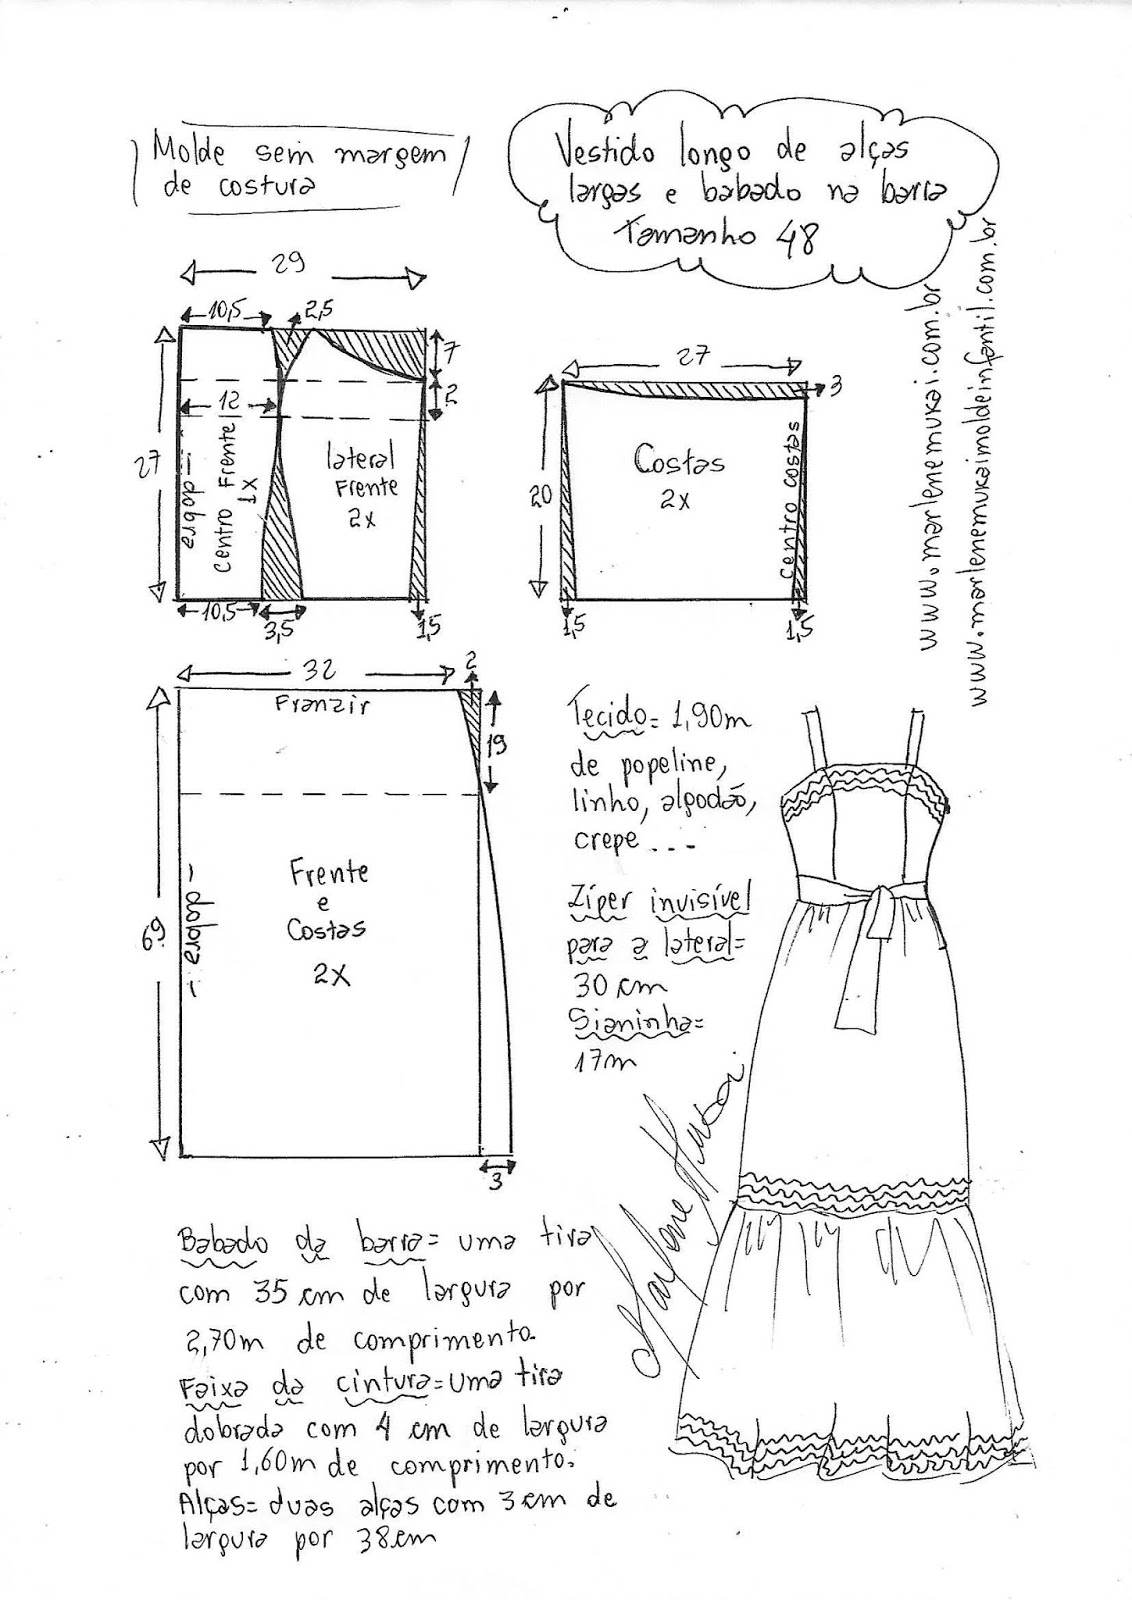 Molde sem margem
de costura
Vestido longo de alças
largas e babado na barra
Tamanho 48
www.marlenemukai.com.br
www.marlenemukaimoldeinfantil.com.br
29
10,5
2,5
7
2
27
12
- dobra -
Centro Frente
1X
lateral
Frente
2x
10,5
3,5
1,5
27
3
20
Costas
2x
Centro costas
1,5
1,5
32
2
Franzir
19
69
- dobra -
Frente
e
Costas
2X
3
Tecido= 1,90m
de popeline,
linho, algodão,
crepe...
Zíper invisível
para a lateral=
30 cm
Sianinha=
17m
Marlene Mukai
Babado da barra= uma tira
com 35 cm de largura por
2,70m de comprimento.
Faixa da cintura= uma tira
dobrada com 4 cm de largura
por 1,60m de comprimento.
Alças= duas alças com 3 cm de
largura por 38cm